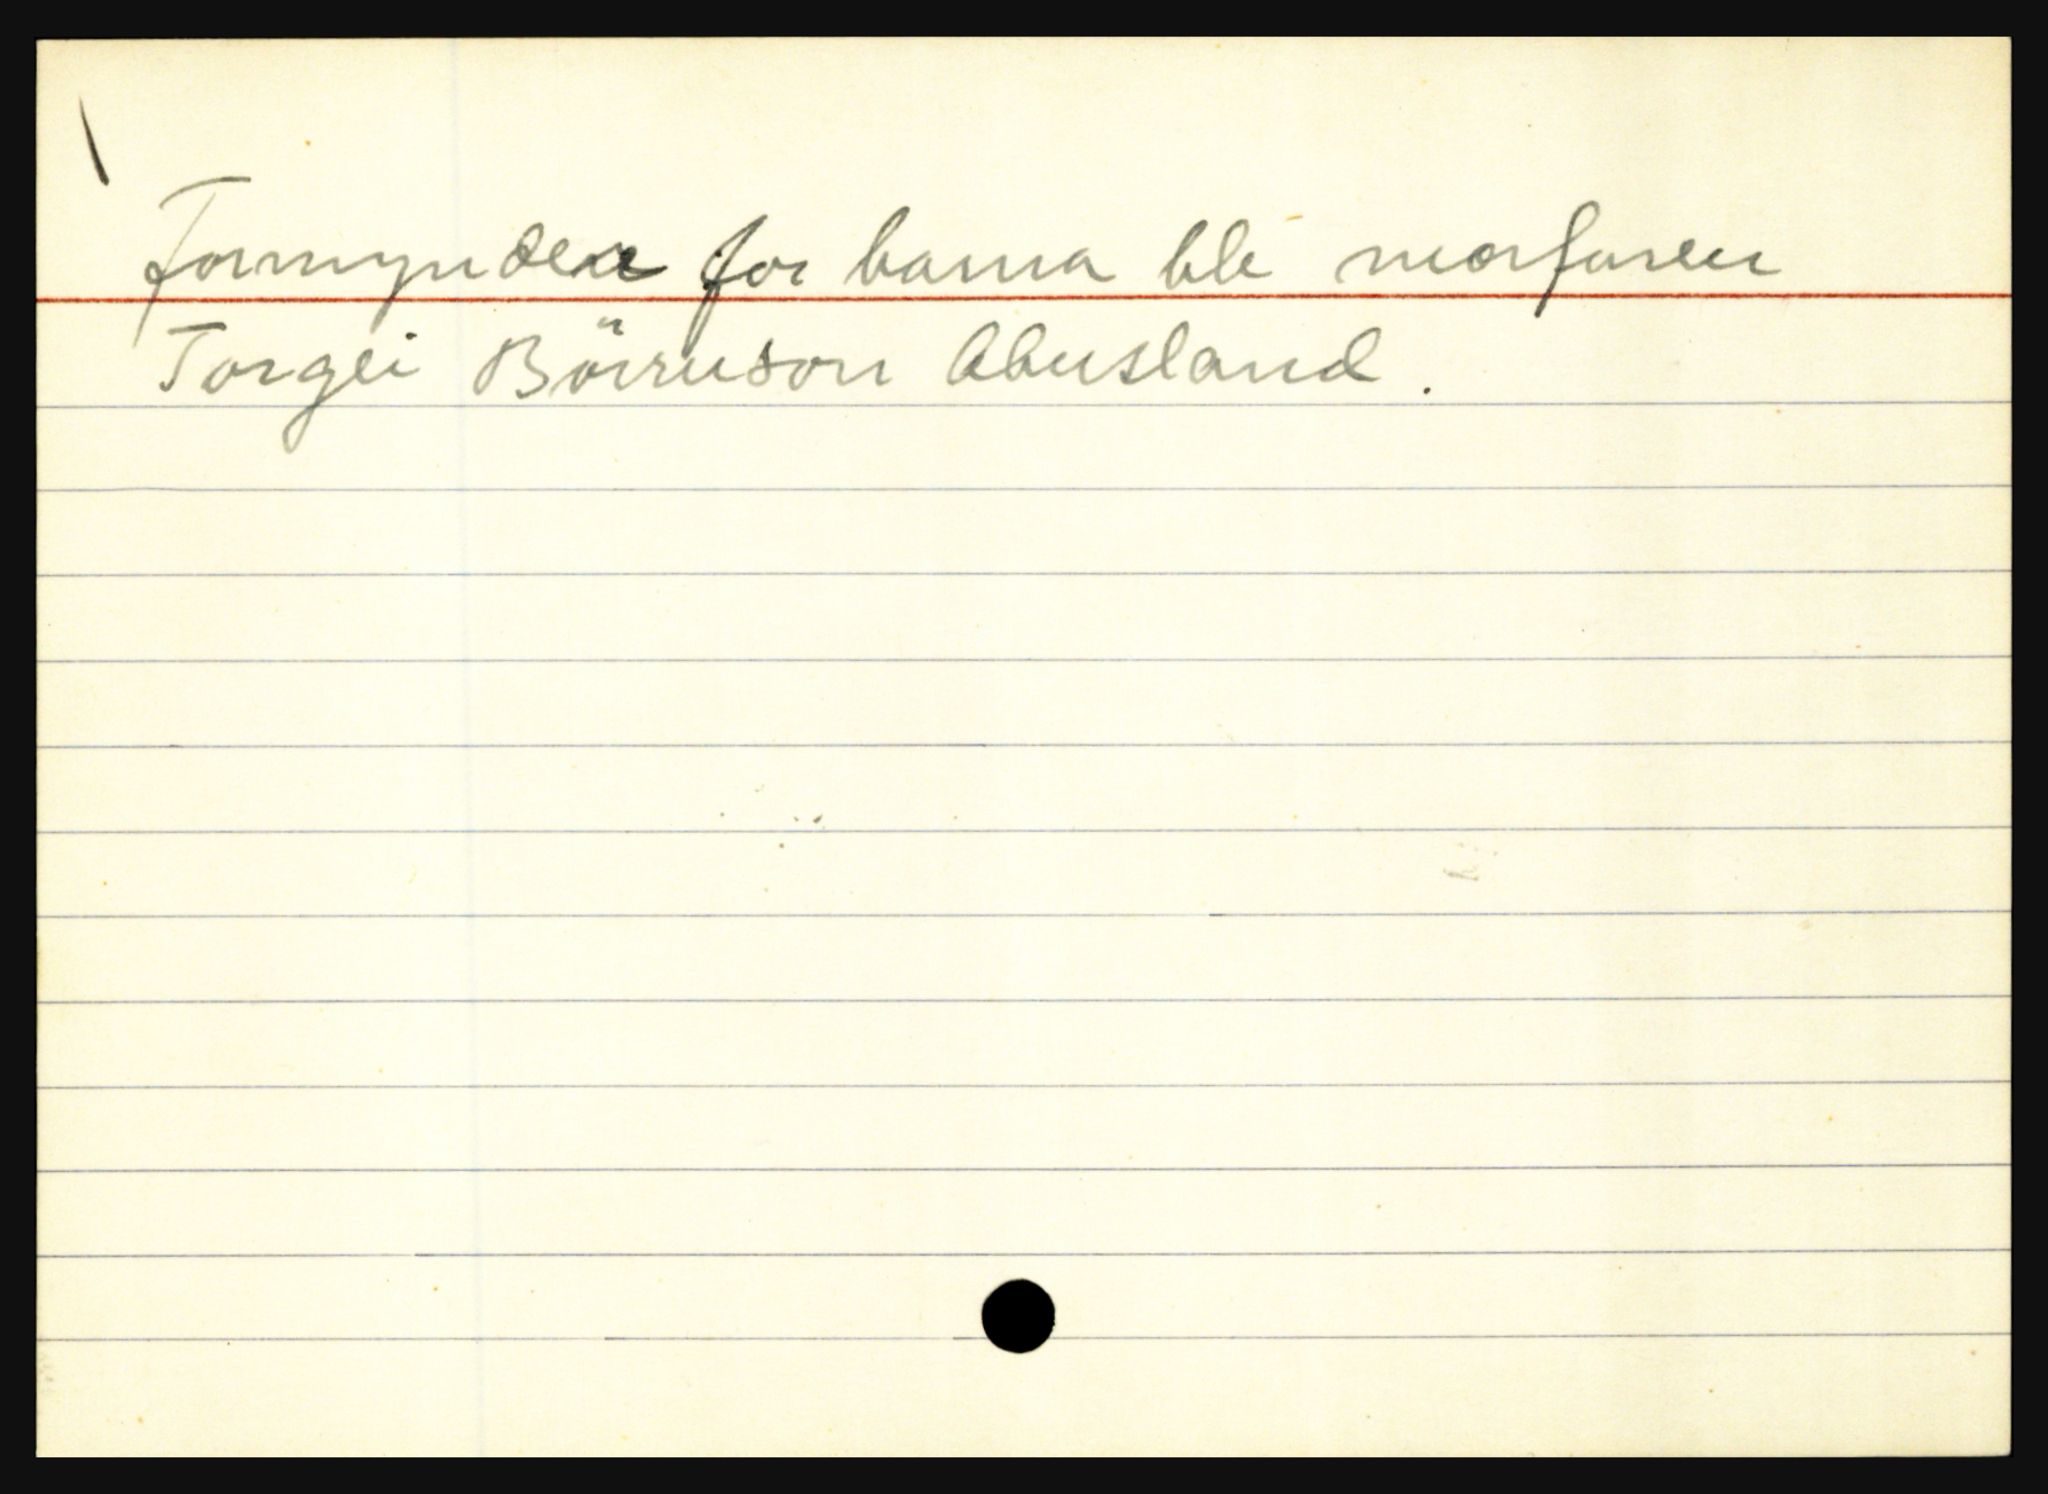 Formynder for barna ble morfaren
Torgei Börruson Abusland.